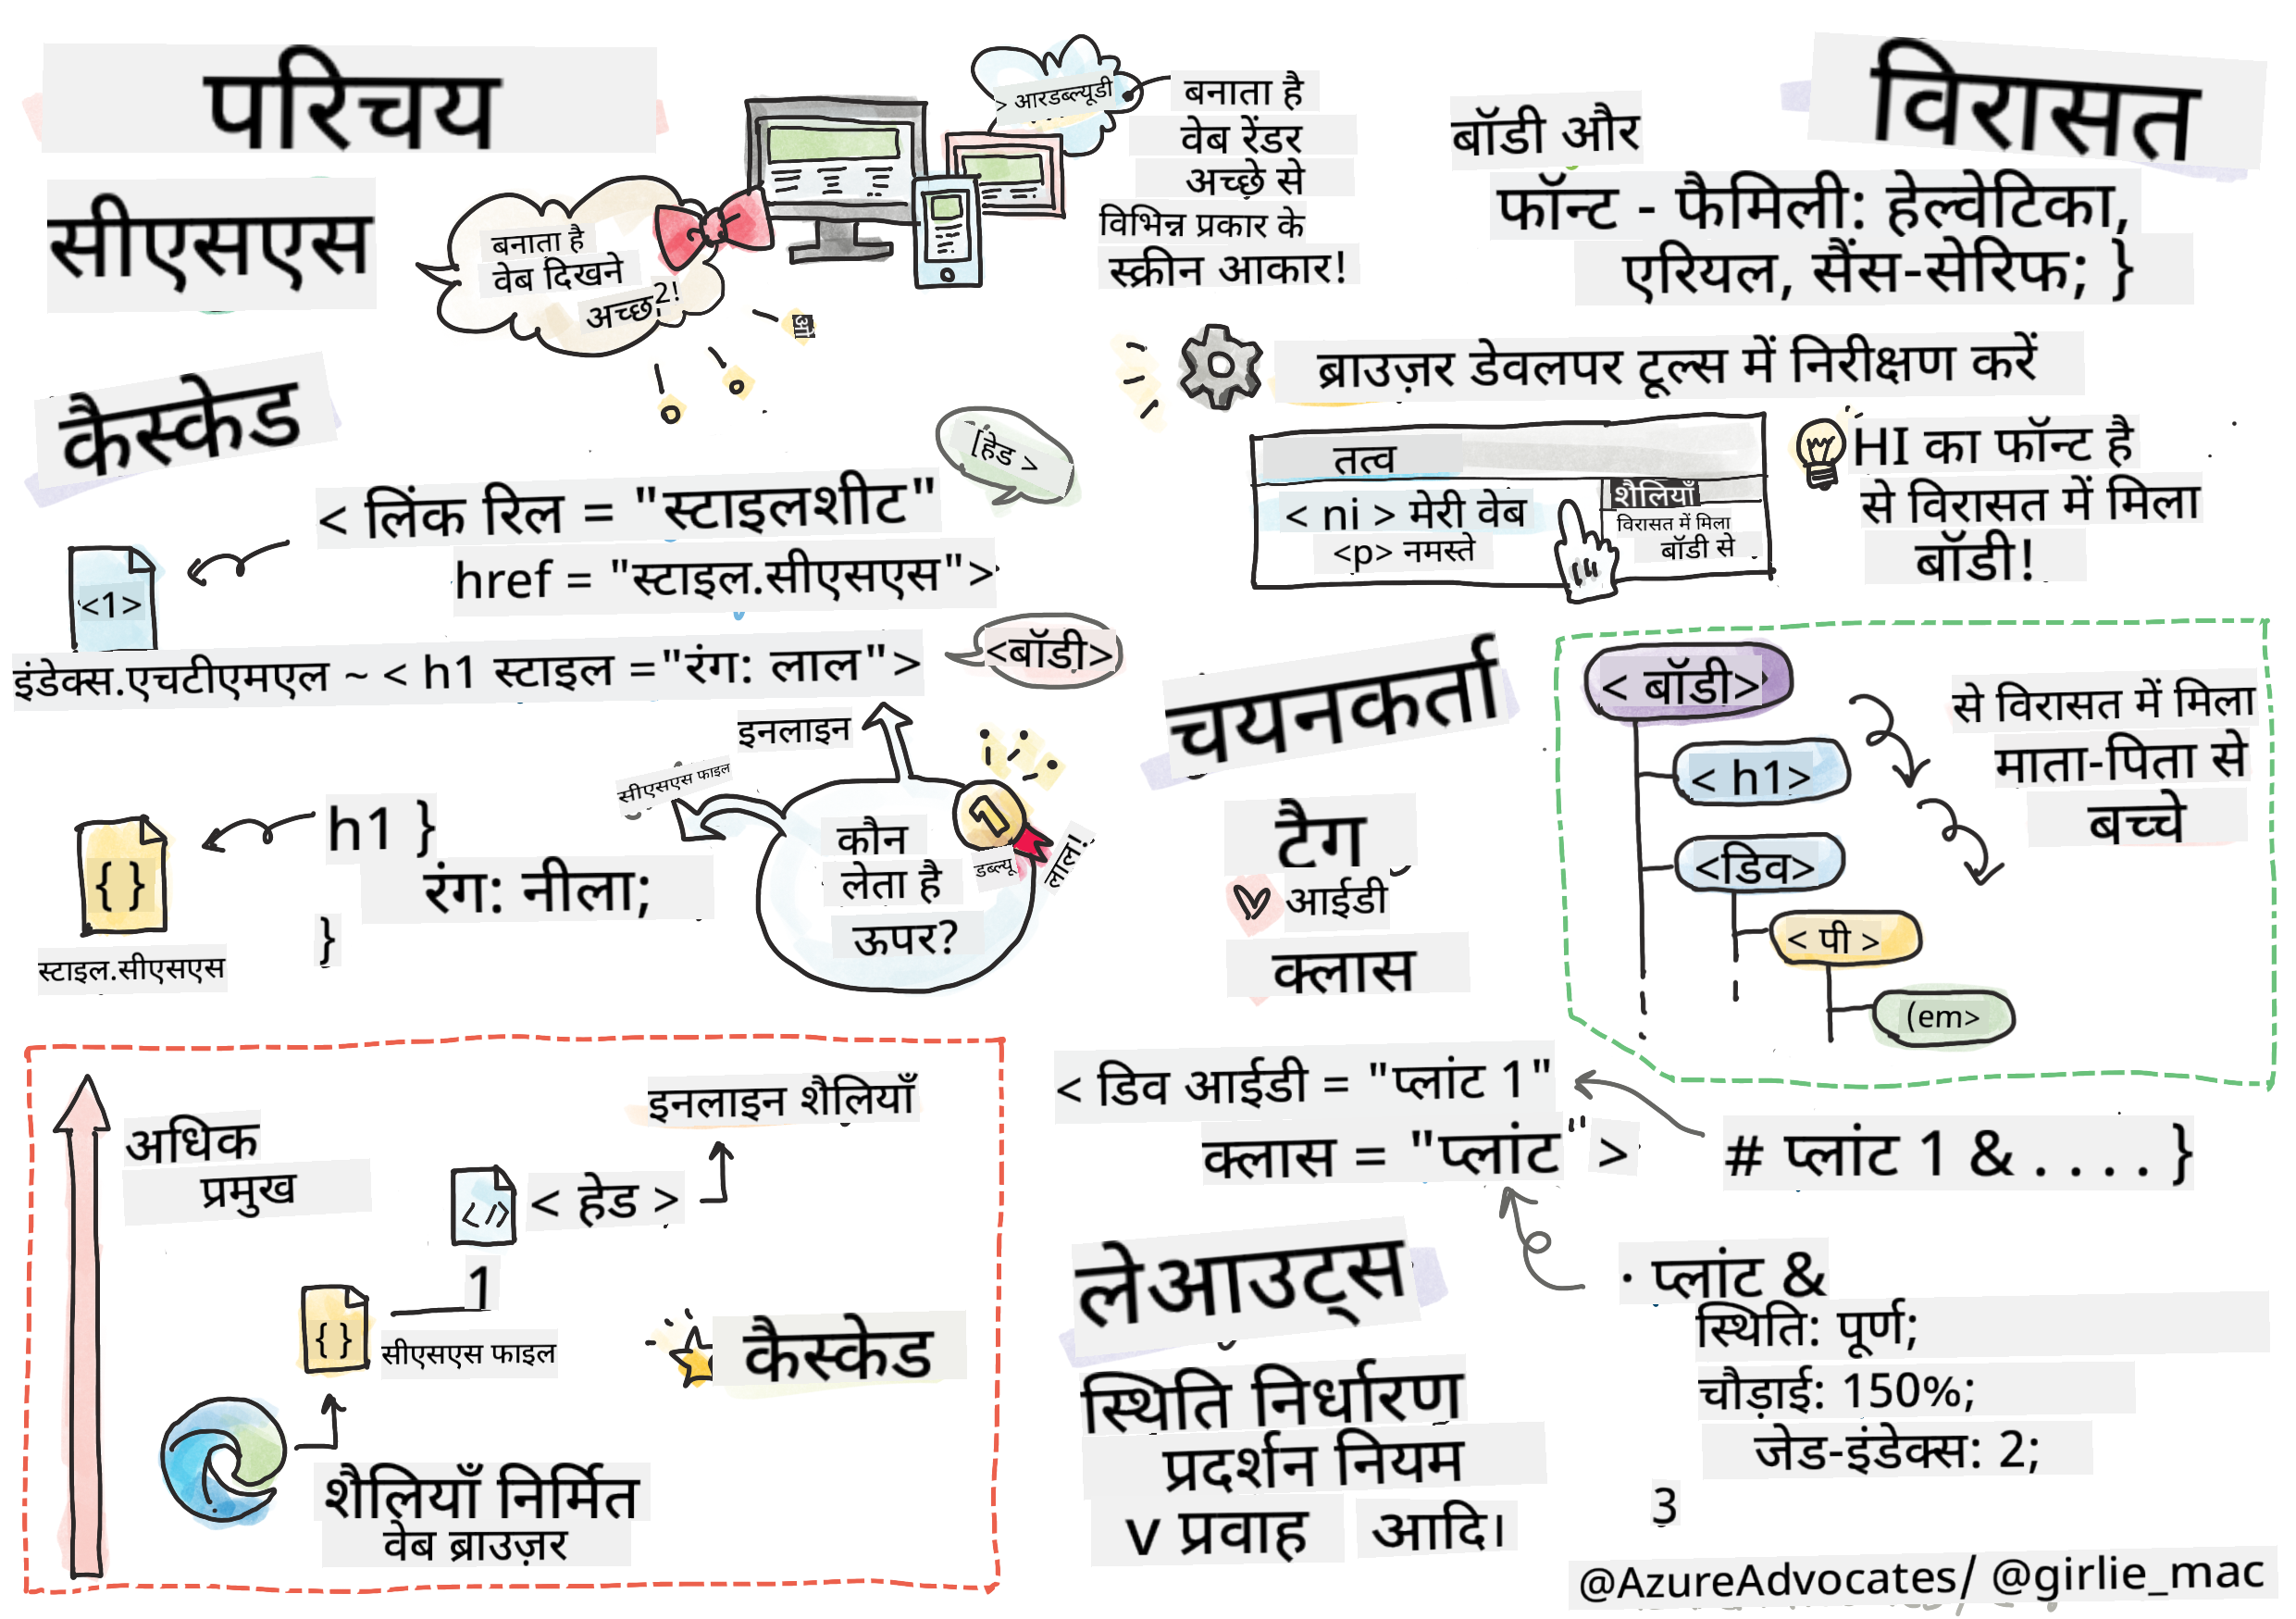 परिचय
सीएसएस
बनाता है
वेब दिखने
अच्छा 2!
> आरडब्ल्यूडी
बनाता है
वेब रेंडर
अच्छे से
विभिन्न प्रकार के
स्क्रीन आकार!
कैस्केड
[हेड >
< लिंक रिल = "स्टाइलशीट"
href = "स्टाइल.सीएसएस">
<1>
इंडेक्स.एचटीएमएल ~ < h1 स्टाइल ="रंग: लाल">
<बॉडी>
इनलाइन
सीएसएस फाइल
h1 }
रंग: नीला;
}
{ }
स्टाइल.सीएसएस
कौन
लेता है
ऊपर?
1
डब्ल्यू
लाल!
अधिक
प्रमुख
इनलाइन शैलियाँ
</> < हेड >
1
{ }
सीएसएस फाइल
कैस्केड
शैलियाँ निर्मित
वेब ब्राउज़र
विरासत
बॉडी और
फॉन्ट - फैमिली: हेल्वेटिका,
एरियल, सैंस-सेरिफ; }
ब्राउज़र डेवलपर टूल्स में निरीक्षण करें
तत्व
< ni > मेरी वेब
<p> नमस्ते
शैलियाँ
विरासत में मिला
बॉडी से
HI का फॉन्ट है
से विरासत में मिला
बॉडी!
चयनकर्ता
टैग
आईडी
क्लास
< बॉडी>
< h1>
<डिव>
< पी >
(em>
से विरासत में मिला
माता-पिता से
बच्चे
< डिव आईडी = "प्लांट 1"
क्लास = "प्लांट" >
# प्लांट 1 & . . . . }
· प्लांट &
स्थिति: पूर्ण;
चौड़ाई: 150%;
जेड-इंडेक्स: 2;
3
लेआउट्स
स्थिति निर्धारण
प्रदर्शन नियम
v प्रवाह आदि।
@AzureAdvocates/ @girlie_mac